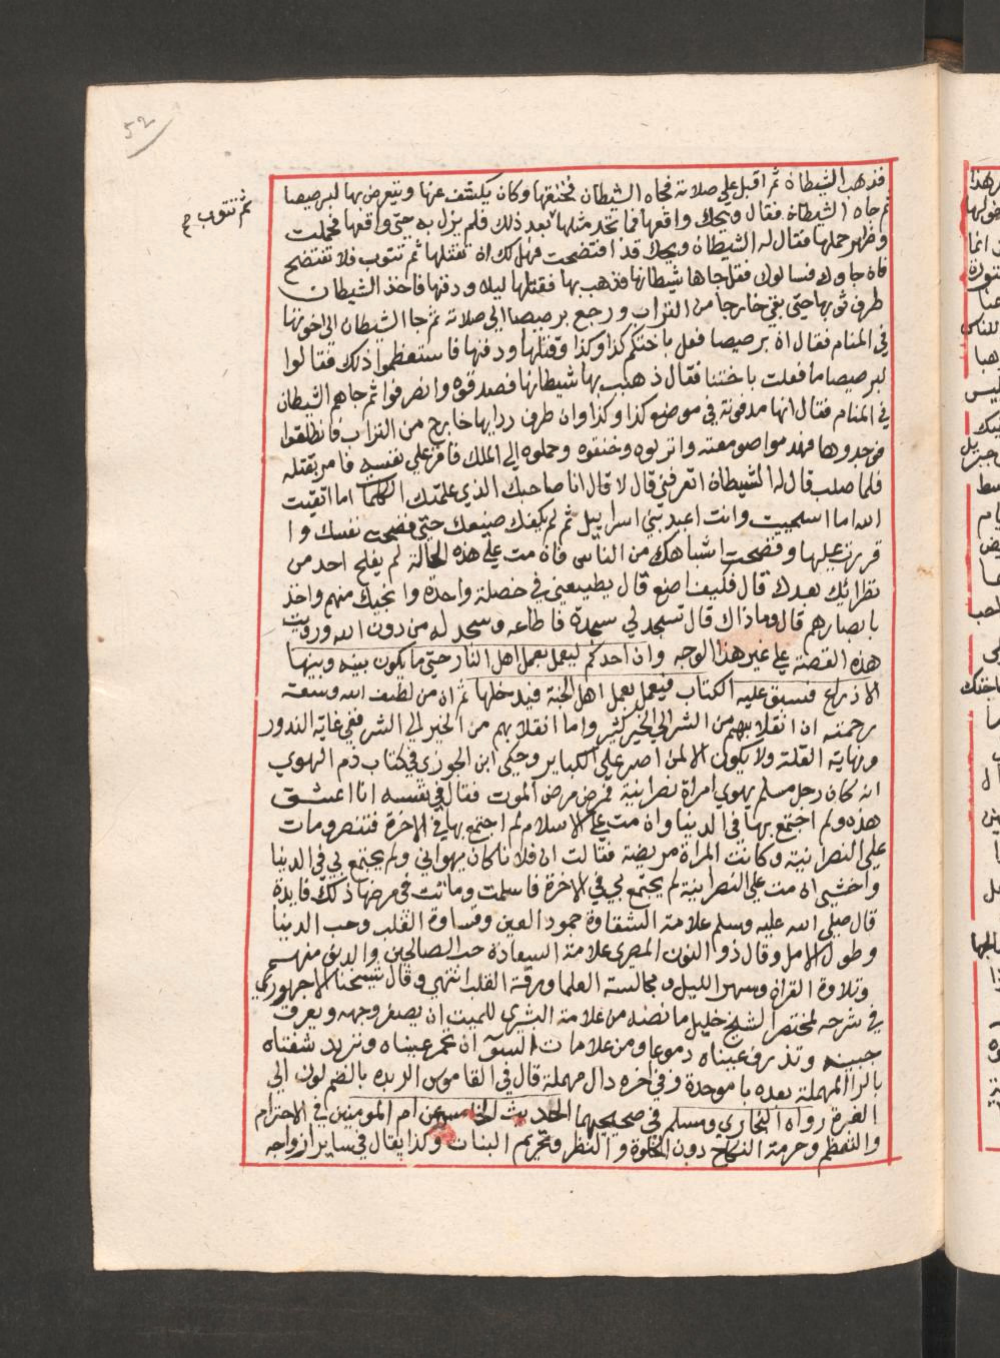 ٥٢
ثم تتوب ح
فذهب الشيطان ثم اقبل على صلاته فجاه الشيطان فخنقها وكان يكشف عنها ويتعرض بها لبرصيصا
ثم جاه الشيطان فقال ويحك واقعها فما تجد مثلها بعد ذلك فلم يزل به حتى واقعها فحملت
وظهر حملها فقال له الشيطان ويحك قد افتضحت فهل لك ان تقتلها ثم تتوب فلا تفتضح
فان جاوك فسالوك فقل جاها شيطانها فذهب بها فقتلها ليلا ودفنها فاخذ الشيطان
طرف ثوبها حتى بقي خارجا من التراب ورجع برصيصا الى صلاته ثم جا الشيطان الى اخوتها
في المنام فقال ان برصيصا فعل باختكم كذا وكذا وقتلها ودفنها فاستعظموا ذلك فقالوا
لبرصيصا ما فعلت باختنا فقال ذهب بها شيطانها فصدقوه وانصرفوا ثم جاهم الشيطان
في المنام فقال انها مدفونة في موضع كذا وكذا وان طرف ردايها خارج من التراب فانطلقوا
فوجدوها فهدموا صومعته وانزلوه وخنقوه وحملوه الى الملك فاقر على نفسه فامر بقتله
فلما صلب قال له الشيطان اتعرفني قال لا قال انا صاحبك الذي علمتك الكلما اما اتقيت
الله اما استحييت وانت اعبد بني اسراييل ثم لم يكفك صنيعك حتى فضحت نفسك وا
قررت عليها وفضحت اشباهك من الناس فان مت على هذه الحالة لم يفلح احد من
نظرائك بعدك قال فكيف اصنع قال تطيعني في خصلة واحدة وانجيك منهم واخذ
بابصارهم قال وما ذاك قال تسجد لي سجدة فاطاعه وسجد له من دون الله ورويت
هذه القصة على غير هذا الوجه وان احدكم ليعمل بعمل اهل النار حتى ما يكون بينه وبينها
الا ذراع فسبق عليه الكتاب فيعمل بعمل اهل الجنة فيدخلها ثم ان من لطف الله وسعة
رحمته ان انقلابهم من الشر الى الخير كثير واما انقلابهم من الخير الى الشر ففي غاية الندور
ونهاية القلة ولا يكون الا لمن اصر على الكباير وحكى ابن الجوزي في كتاب ذم الهوي
انه كان رجل مسلم يهوي امراة نصرانية فمرض مرض الموت فقال في نفسه انا اعشق
هذه ولم اجتمع بها في الدنيا وان مت على الاسلام لم اجتمع بها في الاخرة فتنصر ومات
على النصرانية وكانت المراة مريضة فقالت ان فلانا كان يهواني ولم يجتمع بي في الدنيا
واخشى ان مت على النصرانية لم يجتمع بي في الاخرة فاسلمت وماتت في مرضها ذلك فايدة
قال صلى الله عليه وسلم علامة الشقاوة جمود العين وقساوة القلب وحب الدنيا
وطول الامل وقال ذو النون المصري علامة السعادة حب الصالحين والدنو منهم
وتلاوة القران وسهر الليل ومجالسة العلما ورقة القلب انتهى وقال شيخنا الاجهوري
في شرحه لمختصر الشيخ خليل ما نصه من علامة البشرى للميت ان يصفر وجهه ويعرق
جبينه وتذرف عيناه دموعا ومن علامات السوء ان تحمر عيناه وتربد شفتاه
بالرا المهملة بعده با موحدة وفي اخره دال مهملة قال في القاموس الربده بالضم لون الى
الغبرة رواه البخاري ومسلم في صحيحيهما الحديث الخامس عن ام المومنين في الاحترام
والتعظم وحرمة النكاح دون الخلوة والنظر وتحريم البنات وكذا يقال في ساير ازواجه